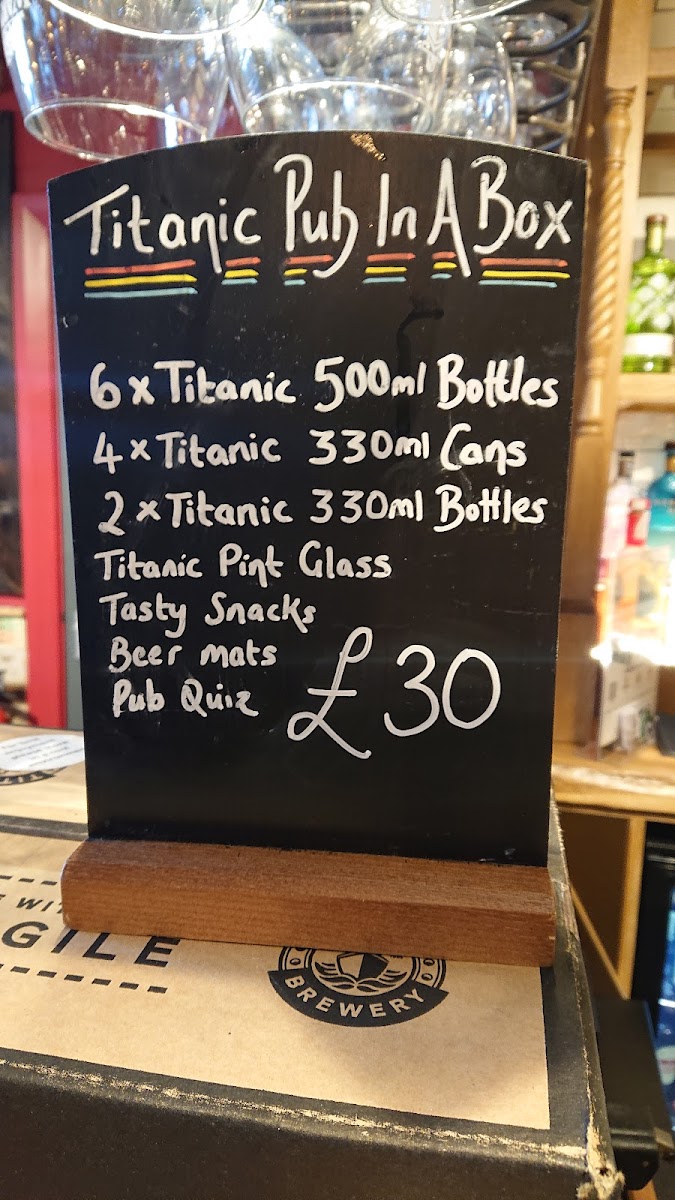 Titanic Pub In A Box
6 x Titanic 500ml Bottles
4 x Titanic 330ml Cans
2 x Titanic 330ml Bottles
Titanic Pint Glass
Tasty Snacks
Beer mats
Pub Quiz
£30
GILE
BREWERY